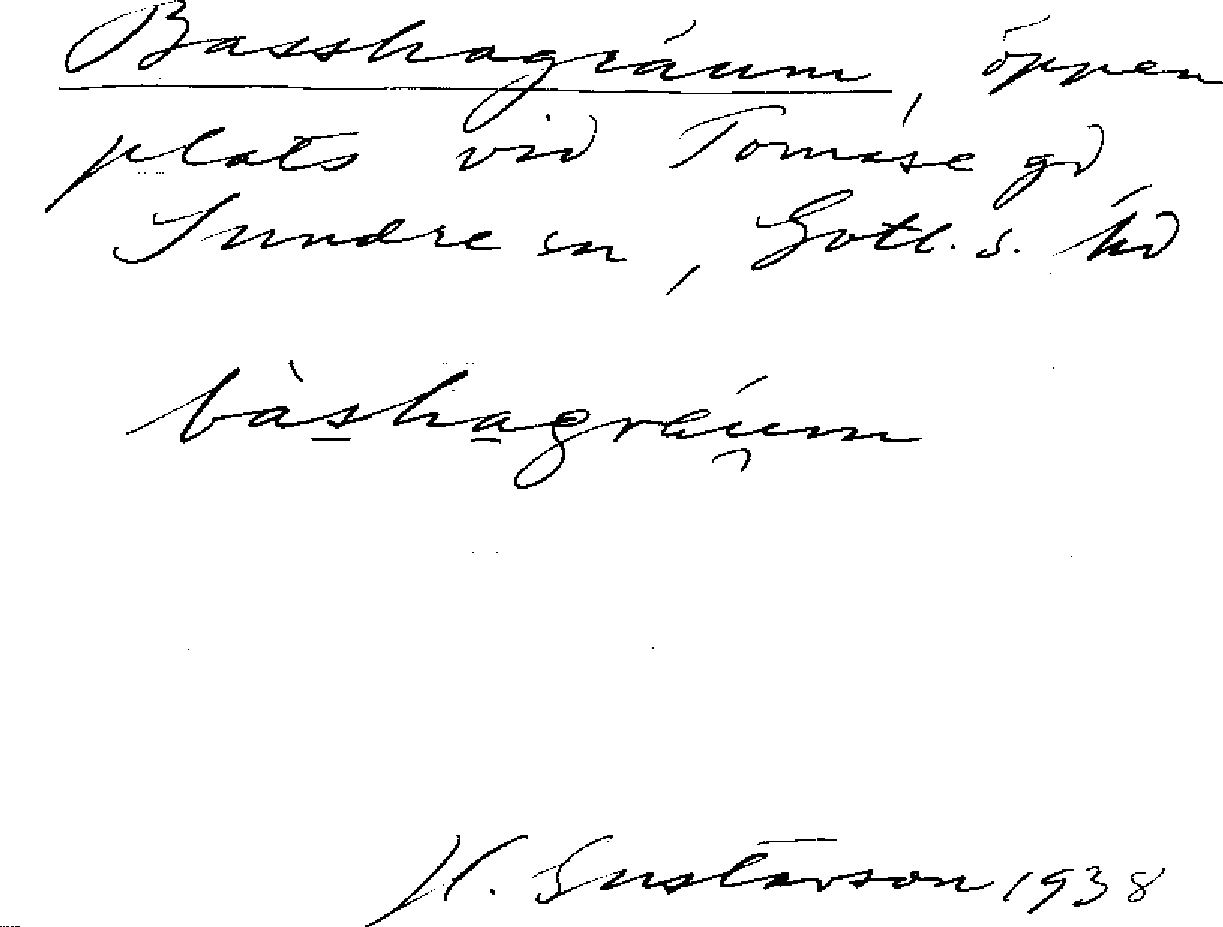 Basshagráum, öppen
plats vid Tomase gd
Sundre sn, Gotl. s. hd
bàshagráum
H. Gustavson 1938